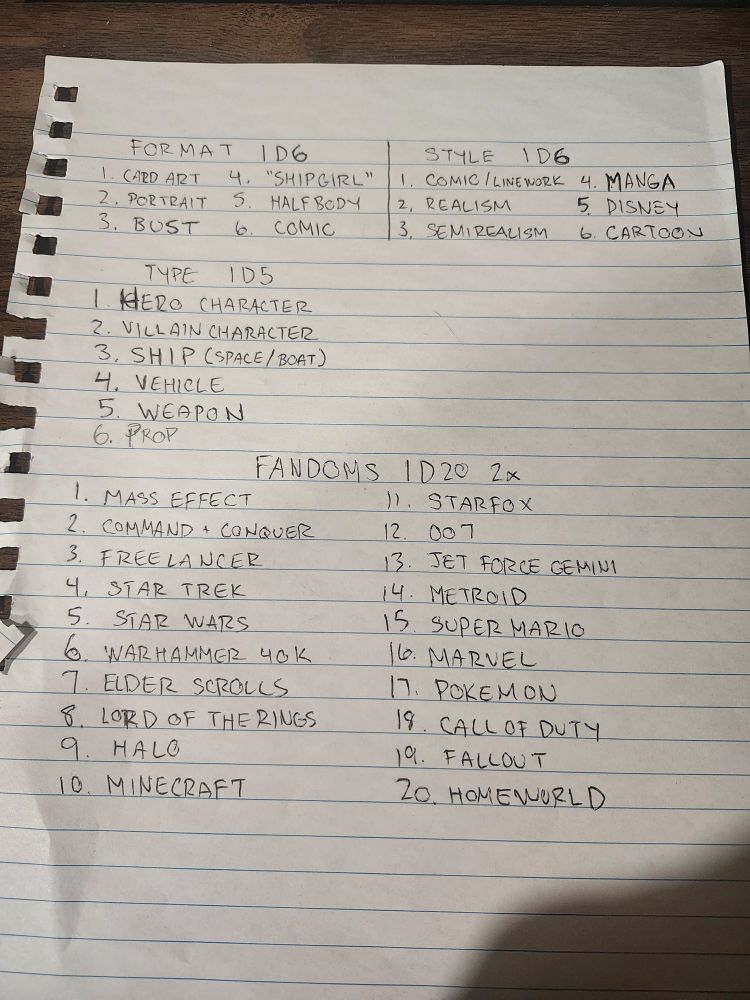 FORMAT 1D6
1. CARD ART 4. "SHIPGIRL"
2. PORTRAIT 5. HALFBODY
3. BUST 6. COMIC
STYLE 1D6
1. COMIC/LINEWORK 4. MANGA
2. REALISM 5. DISNEY
3. SEMIREALISM 6. CARTOON
TYPE 1D5
1. HERO CHARACTER
2. VILLAIN CHARACTER
3. SHIP (SPACE/BOAT)
4. VEHICLE
5. WEAPON
6. PROP
FANDOMS 1D20 2x
1. MASS EFFECT
2. COMMAND + CONQUER
3. FREELANCER
4. STAR TREK
5. STAR WARS
6. WARHAMMER 40K
7. ELDER SCROLLS
8. LORD OF THE RINGS
9. HALO
10. MINECRAFT
11. STARFOX
12. 007
13. JET FORCE GEMINI
14. METROID
15. SUPER MARIO
16. MARVEL
17. POKEMON
18. CALL OF DUTY
19. FALLOUT
20. HOMEWORLD